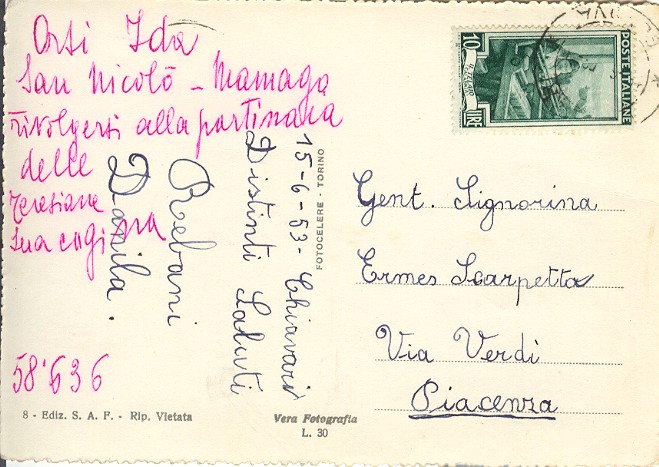 Orsi Ida
San Nicolò - Mamago
rivolgersi alla portinaia
delle
Teresiane
sua cugina
58'636
15-6-53-Chiavari
Distinti Saluti
Rebani
Danila.
FOTOCELERE - TORINO
10
LIRE
POSTE ITALIANE
Gent. Signorina
Ermes Scarpetta
Via Verdi
Piacenza
8 - Ediz. S. A. F. - Rip. Vietata
Vera Fotografia
L. 30